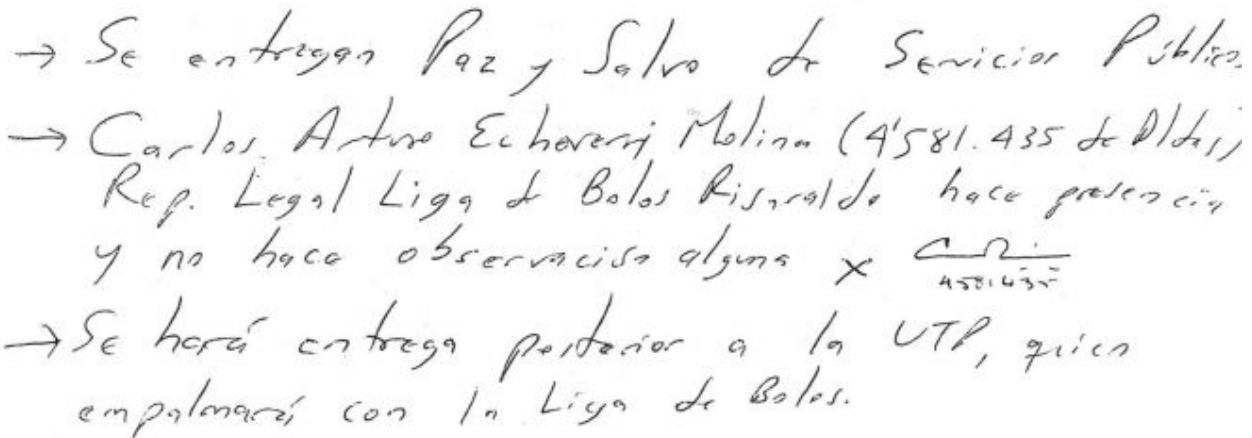 → Se entregan Paz y Salvo de Servicios Públicos
→ Carlos Arturo Echeverrj Molina (4'581.435 de
Rep. Legal Liga de Bolos Risaralda hace presencia
y no hace observación alguna x
4581435
→ Se hará entrega posterior a la UTP, quien
empalmará con la Liga de Bolos.